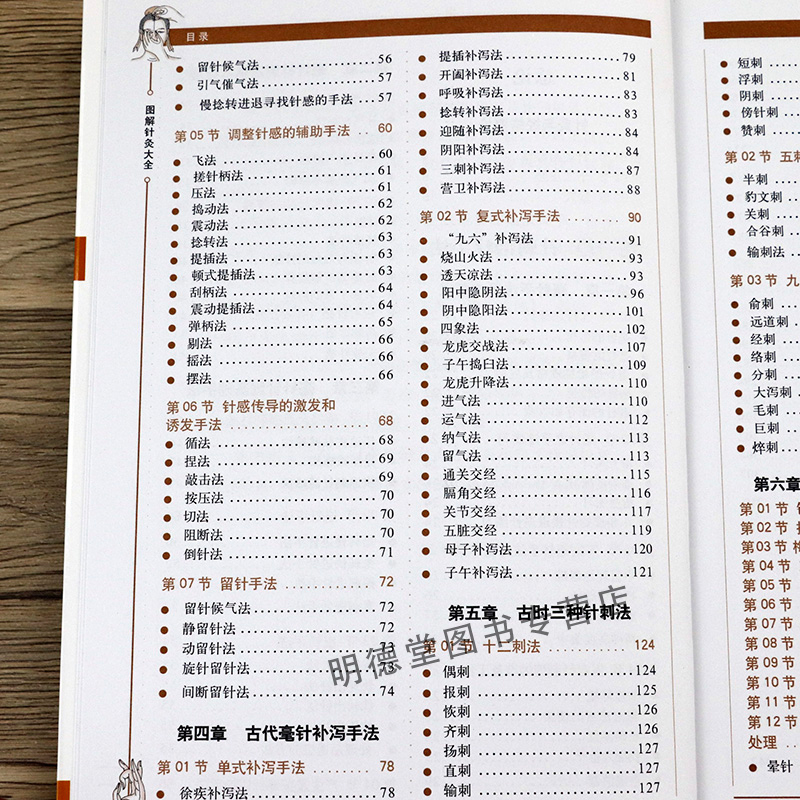 目录
图解针灸大全
留针候气法 56
引气催气法 57
慢捻转进退寻找针感的手法 57
第 05 节 调整针感的辅助手法 60
飞法 60
搓针柄法 61
压法 61
捣动法 62
震动法 62
捻转法 63
提插法 63
顿式提插法 63
刮柄法 64
震动提插法 64
弹柄法 65
剔法 66
摇法 66
摆法 66
第 06 节 针感传导的激发和
诱发手法 68
循法 68
捏法 69
敲击法 69
按压法 70
切法 70
阻断法 70
倒针法 71
第 07 节 留针手法 72
留针候气法 72
静留针法 72
动留针法 73
旋针留针法 73
间断留针法 74
第四章 古代毫针补泻手法
第 01 节 单式补泻手法 78
徐疾补泻法 78
提插补泻法 79
开阖补泻法 81
呼吸补泻法 83
捻转补泻法 83
迎随补泻法 84
阴阳补泻法 84
三刺补泻法 87
营卫补泻法 88
第 02 节 复式补泻手法 90
“九六”补泻法 91
烧山火法 93
透天凉法 93
阳中隐阴法 96
阴中隐阳法 101
四象法 102
龙虎交战法 107
子午捣臼法 109
龙虎升降法 110
进气法 110
运气法 112
纳气法 113
留气法 113
通关交经 115
膈角交经 116
关节交经 117
五脏交经 119
母子补泻法 120
子午补泻法 121
第五章 古时三种针刺法
第 01 节 十二刺法 124
偶刺 124
报刺 125
恢刺 126
齐刺 126
扬刺 127
直刺 127
输刺 127
短刺
浮刺
阴刺
傍针刺
赞刺
第 02 节 五刺
半刺
豹文刺
关刺
合谷刺
输刺法
第 03 节 九
俞刺
远道刺
经刺
络刺
分刺
大泻刺
毛刺
巨刺
焠刺
第六章
第 01 节
第 02 节
第 03 节
第 04 节
第 05 节
第 06 节
第 07 节
第 08 节
第 09 节
第 10 节
第 11 节
第 12 节
处理
晕针
明德堂图书专营店